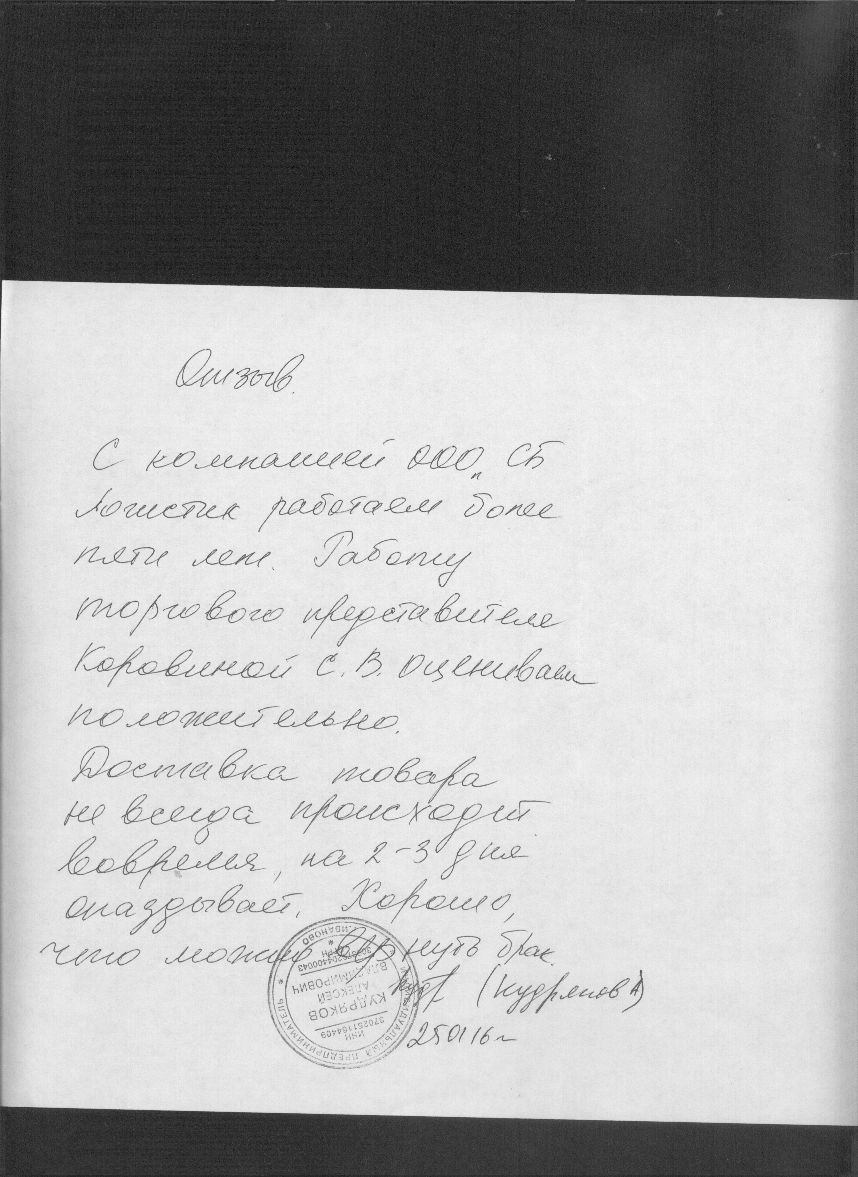 Отзыв.
С компанией ООО „ СБ
Логистик работаем более
пяти лет. Работу
торгового представителя
Коровиной С. В. оцениваем
положительно.
Доставка товара
не всегда происходит
вовремя, на 2-3 дня
опаздывает. Хорошо,
что можно вернуть брак.
(Кудряков А)
25 01 16 г
ИНДИВИДУАЛЬНЫЙ ПРЕДПРИНИМАТЕЛЬ * Г.ИВАНОВО *
ИНН
370251164409
КУДРЯКОВ
АЛЕКСЕЙ
ВЛАДИМИРОВИЧ